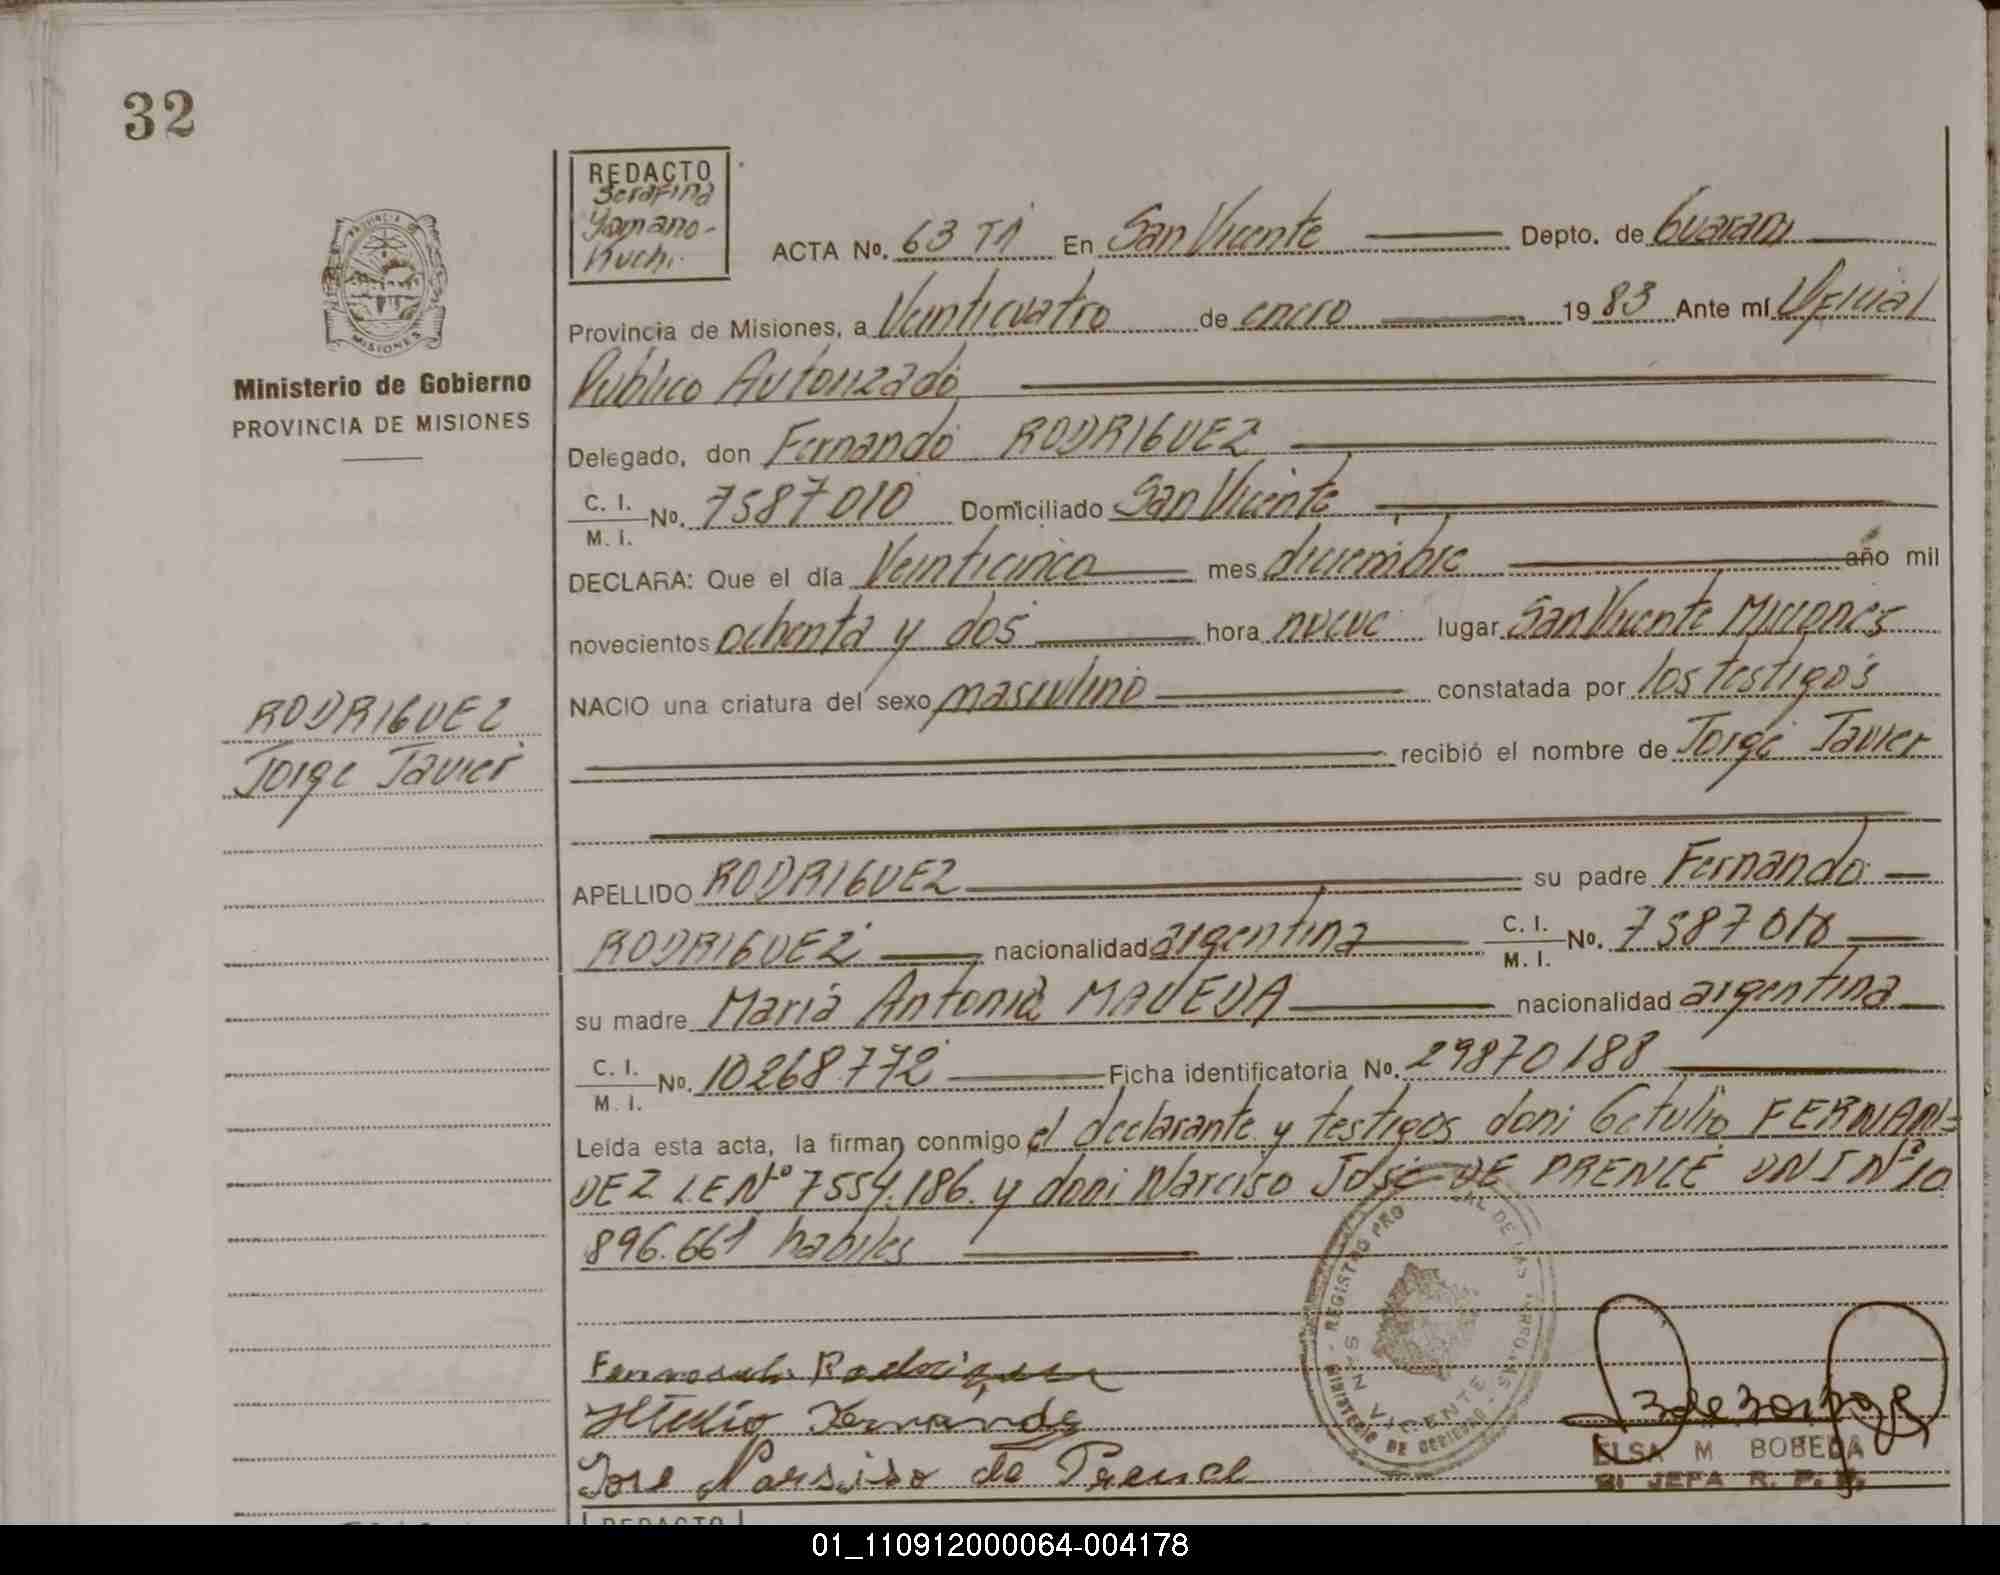 32
REDACTO
Serafina
Yamano-
Kuchi.
PROVINCIA DE
MISIONES
Ministerio de Gobierno
PROVINCIA DE MISIONES
ACTA No. 63 T1 En San Vicente Depto. de Guarani
Provincia de Misiones, a Veinticuatro de enero 1983 Ante mí Oficial
Publico Autorizado
Delegado, don Fernando RODRIGUEZ
C. I.
M. I. No. 7587010 Domiciliado San Vicente
DECLARA: Que el día Veinticinco mes diciembre año mil
novecientos ochenta y dos hora nueve lugar San Vicente Misiones
NACIO una criatura del sexo masculino constatada por los testigos
recibió el nombre de Jorge Javier
RODRIGUEZ
Jorge Javier
APELLIDO RODRIGUEZ su padre Fernando
RODRIGUEZ nacionalidad argentina C. I.
M. I. No. 7587010
su madre Maria Antonia nacionalidad argentina
C. I.
M. I. No. 10268.772 Ficha identificatoria No. 29870188
Leída esta acta, la firman conmigo el declarante y testigos don: Getulio FERNAN=
DEZ L.E Nº 7554.186. y don: Narciso José DE PRENCE DNI Nº 10
896.661 habiles
REGISTRO PRO AL DE LAS PERSONAS
SAN VICENTE
MINISTERIO DE GOBIERNO
Fernando Rodriguez
Fernandez
Jose Narsiso de Prence
ELSA M BOBEDA
JEFA R. P.
REDACTO
01_110912000064-004178